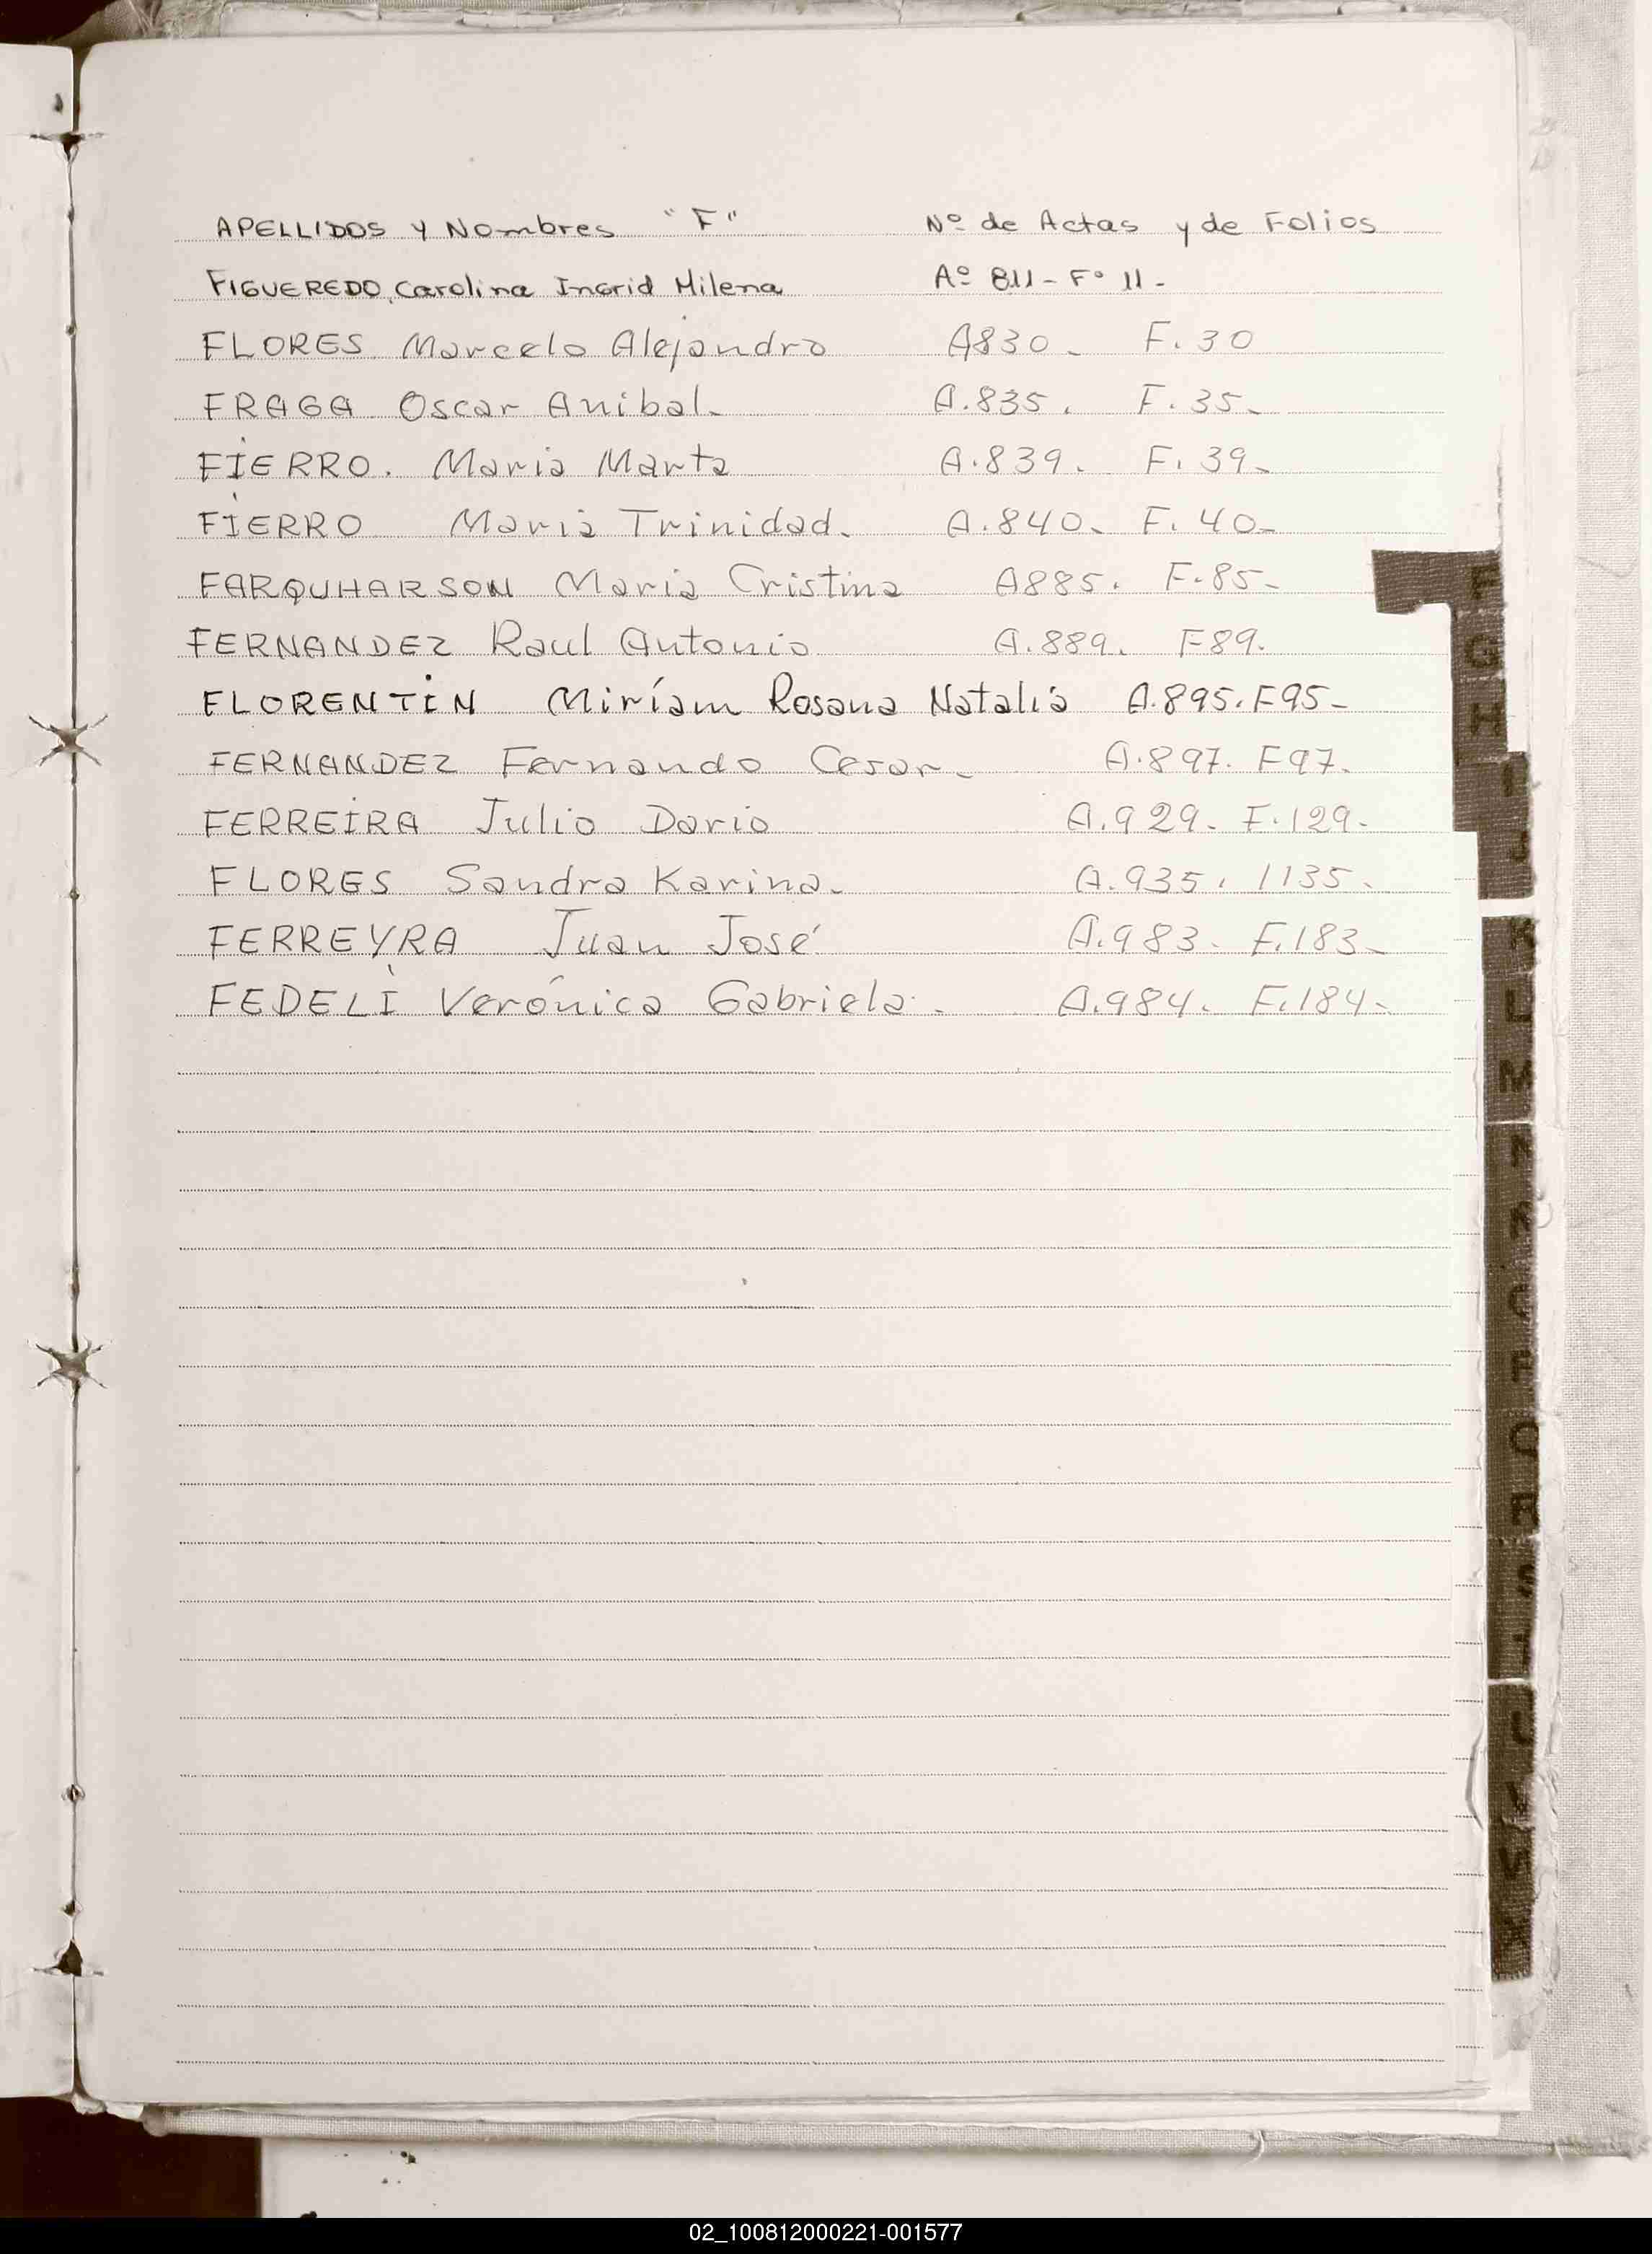 APELLIDOS y Nombres "F" Nº de Actas y de Folios
FIGUEREDO, Carolina Ingrid Milena Aº 811 - Fº 11 -
FLORES Marcelo Alejandro A830 - F. 30
FRAGA Oscar Anibal. A.835. F.35-
FIERRO. Maria Marta A.839. F. 39-
FIERRO Maria Trinidad. A.840- F. 40-
FARQUHARSON Maria Cristina A885. F.85-
FERNANDEZ Raul Antonio A.889. F89.
FLORENTIN Miríam Rosana Natalia A.895. F95-
FERNANDEZ Fernando Cesar- A.897. F97.
FERREIRA Julio Dario A.929. F.129.
FLORES Sandra Karina- A.935. 1135.
FERREYRA Juan José A.983. F.183-
FEDELI Verónica Gabriela. A.984. F.184-
F
G
H
I
J
K
L
M
02_100812000221-001577